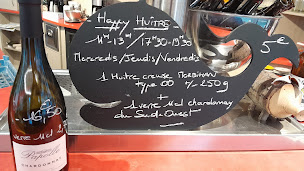 Happy HUITRES
11H-13H / 17H30-19H30
Mercredis/Jeudis/Vendredis
5€
1 Huitre creuse Morbihan
type 00 +/- 250g
+
1 verre Mcl chardonnay
du Sud-Ouest
16,50
verre Mcl
CHARDONNAY